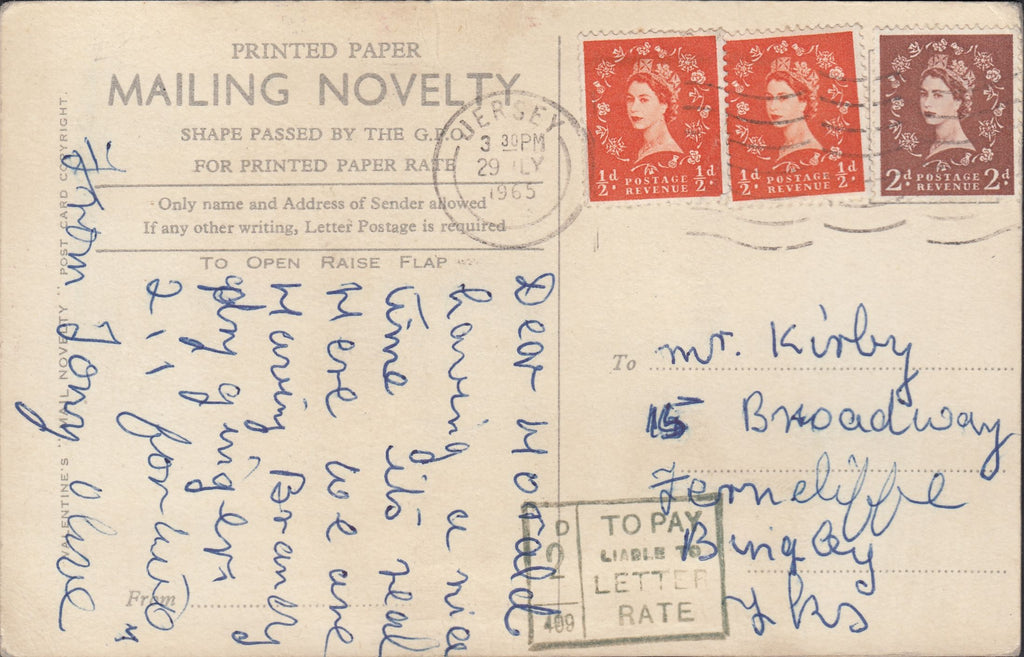 PRINTED PAPER
MAILING NOVELTY
SHAPE PASSED BY THE G.P.O.
FOR PRINTED PAPER RATE
Only name and Address of Sender allowed
If any other writing, Letter Postage is required
TO OPEN RAISE FLAP
JERSEY
3 30PM
29 LY
1965
½d POSTAGE REVENUE ½d
½d POSTAGE REVENUE ½d
2d POSTAGE REVENUE 2d
Dear
having a nice
time its real
Here we are
Having Brandy
dry gingers
2,, for two
From Tony Olive
To Mr. Kirby
15 Broadway
Ferncliffe
Bingley
Yks
From
D
2
409
TO PAY
LIABLE TO
LETTER
RATE
VALENTINE'S "MAIL NOVELTY" POST CARD COPYRIGHT.